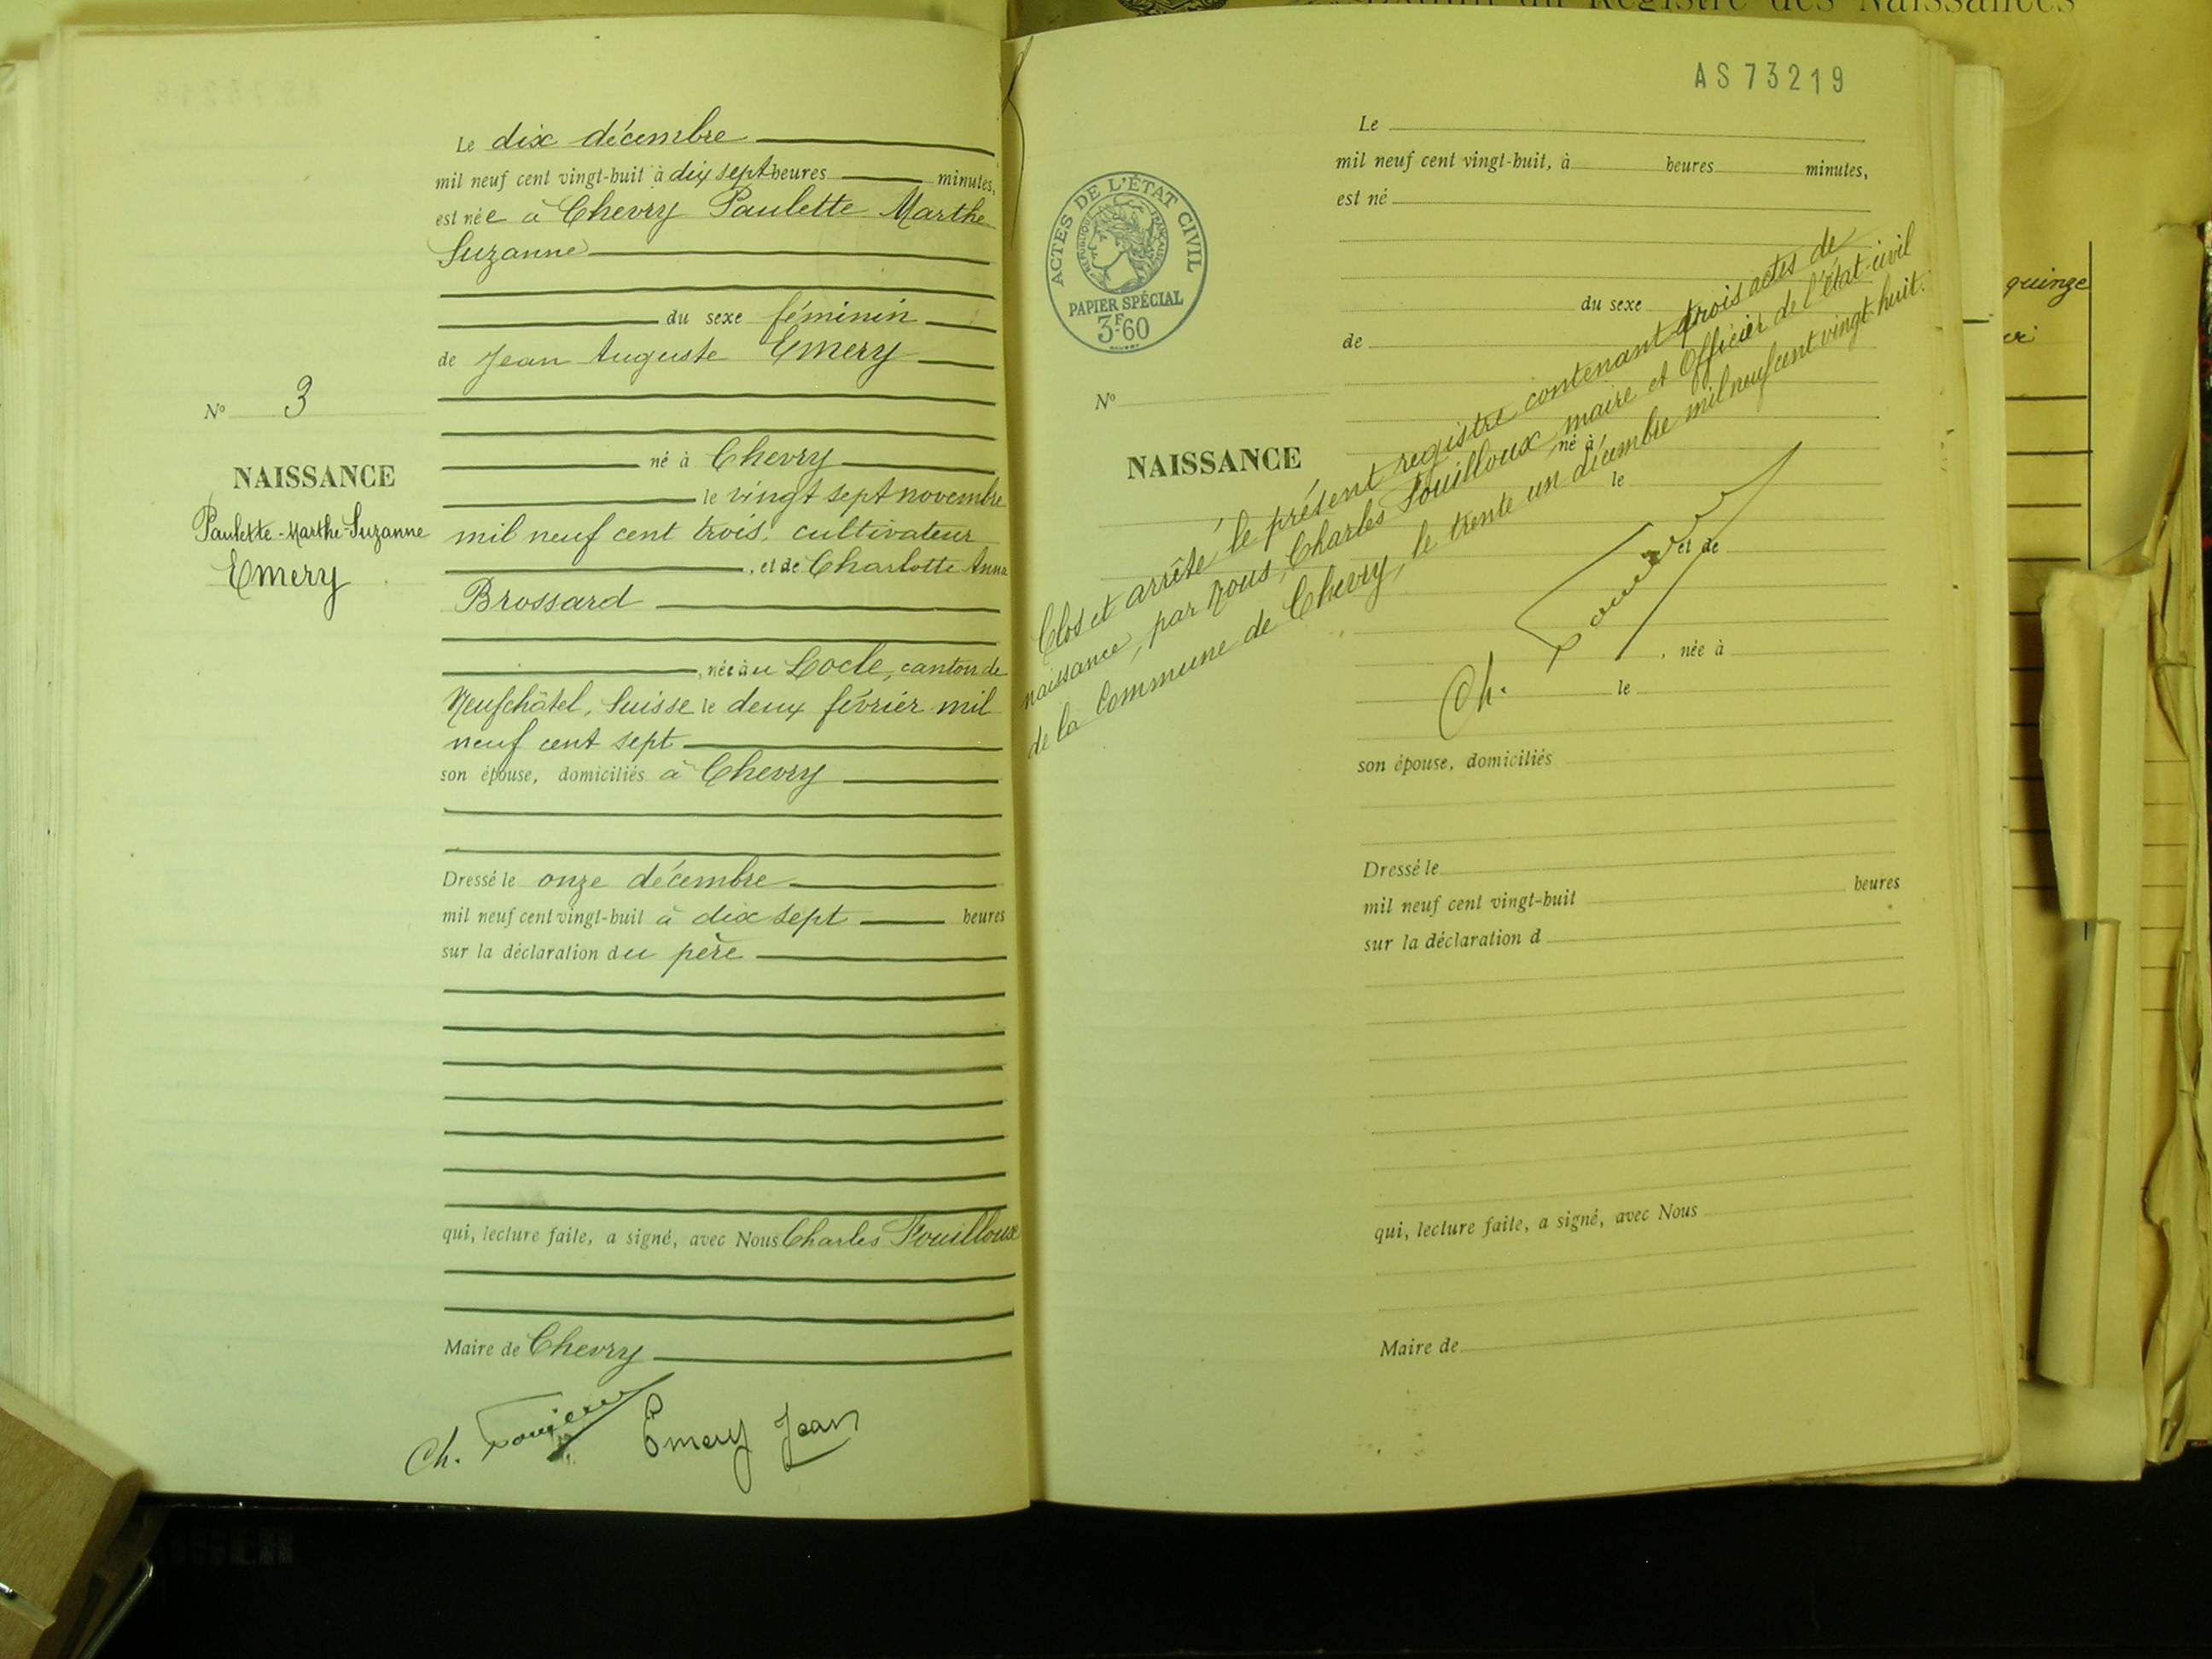 Le dix décembre
mil neuf cent vingt-huit à dix sept heures minutes,
est née à Chevry Paulette Marthe
Suzanne
du sexe féminin
de Jean Auguste Emery
né à Chevry
le vingt sept novembre
mil neuf cent trois, cultivateur
, et de Charlotte Anna
Brossard
, née au Locle, canton de
Neufchâtel, Suisse le deux février mil
neuf cent sept
son épouse, domiciliés à Chevry
Dressé le onze décembre
mil neuf cent vingt-huit à dix sept heures
sur la déclaration du père
qui, lecture faite, a signé, avec Nous Charles Fouilloux
Maire de Chevry
Ch. Emery Jean
N° 3
NAISSANCE
Paulette-Marthe-Suzanne
Emery
AS 73219
ACTES DE L'ÉTAT CIVIL
RÉPUBLIQUE FRANÇAISE
PAPIER SPÉCIAL
3F.60
N°
NAISSANCE
Le
mil neuf cent vingt-huit, à heures minutes,
est né
du sexe
de
né à
le
et de
, née à
le
son épouse, domiciliés
Dressé le
mil neuf cent vingt-huit heures
sur la déclaration d
qui, lecture faite, a signé, avec Nous
Maire de
Clos et arrêté le présent registre contenant trois actes de
naissance, par Nous, Charles Fouilloux, maire et Officier de l'état-civil
de la Commune de Chevry, le trente un décembre mil neuf cent vingt-huit.
Ch.
Extrait du Registre des Naissances
quinze